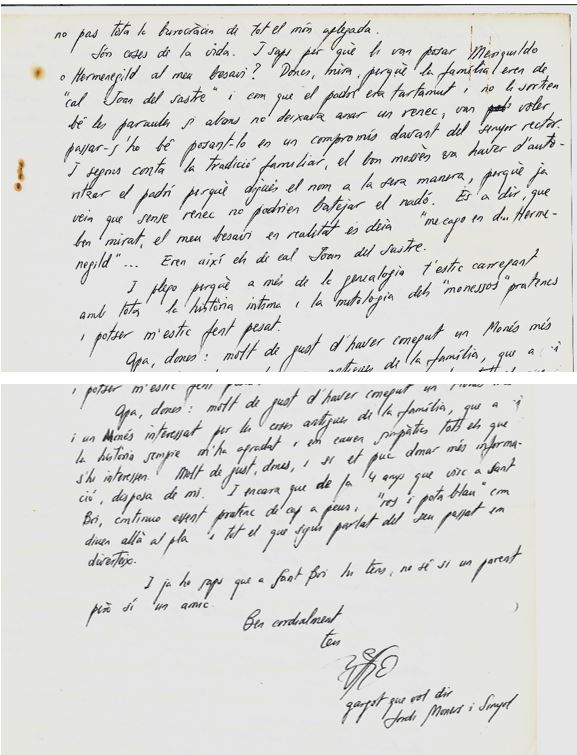 no pas tota la burocràcia de tot el món aplegada.
Són coses de la vida. I saps per què li van posar Meneguildo
o Hermenegild al meu besavi? Doncs, mira, perquè la família eren de
"cal Joan del sastre" i com que el padrí era tartamut i no li sortien
bé les paraules si abans no deixava anar un renec, van voler
passar-s'ho bé posant-lo en un compromís davant del senyor rector.
I segons conta la tradició familiar, el bon mossèn va haver d'auto-
ritzar el padrí perquè digués el nom a la seva manera, perquè ja
veia que sense renec no podrien batejar el nadó. És a dir, que
ben mirat, el meu besavi en realitat es deia "me cago en d... Herme-
negild"... Eren així els de cal Joan del Sastre.
I plego perquè a més de la genealogia t'estic carregant
amb tota la història íntima i la mitologia dels "monessos" pratencs
i potser m'estic fent pesat.
Apa, doncs: molt de gust d'haver conegut un Monés més
antigues de la família, que a
i potser m'estic fent
Apa, doncs: molt de gust d'haver conegut un Monés
i un Monés interessat per les coses antigues de la família, que a
la història sempre m'ha agradat i em cauen simpàtics tots els que
s'hi interessen. Molt de gust, doncs, i si et puc donar més informa-
ció, disposa de mi. I encara que de fa 4 anys que visc a Sant
Boi, continuo essent pratenc de cap a peus, i "ros i pota blau" com
diuen allà al pla i tot el que sigui parlar del seu passat em
diverteix.
I ja ho saps que a Sant Boi hi tens, no sé si un parent
però sí un amic.
Ben cordialment
teu
gargot que vol dir
Jordi Monés i Sunyol